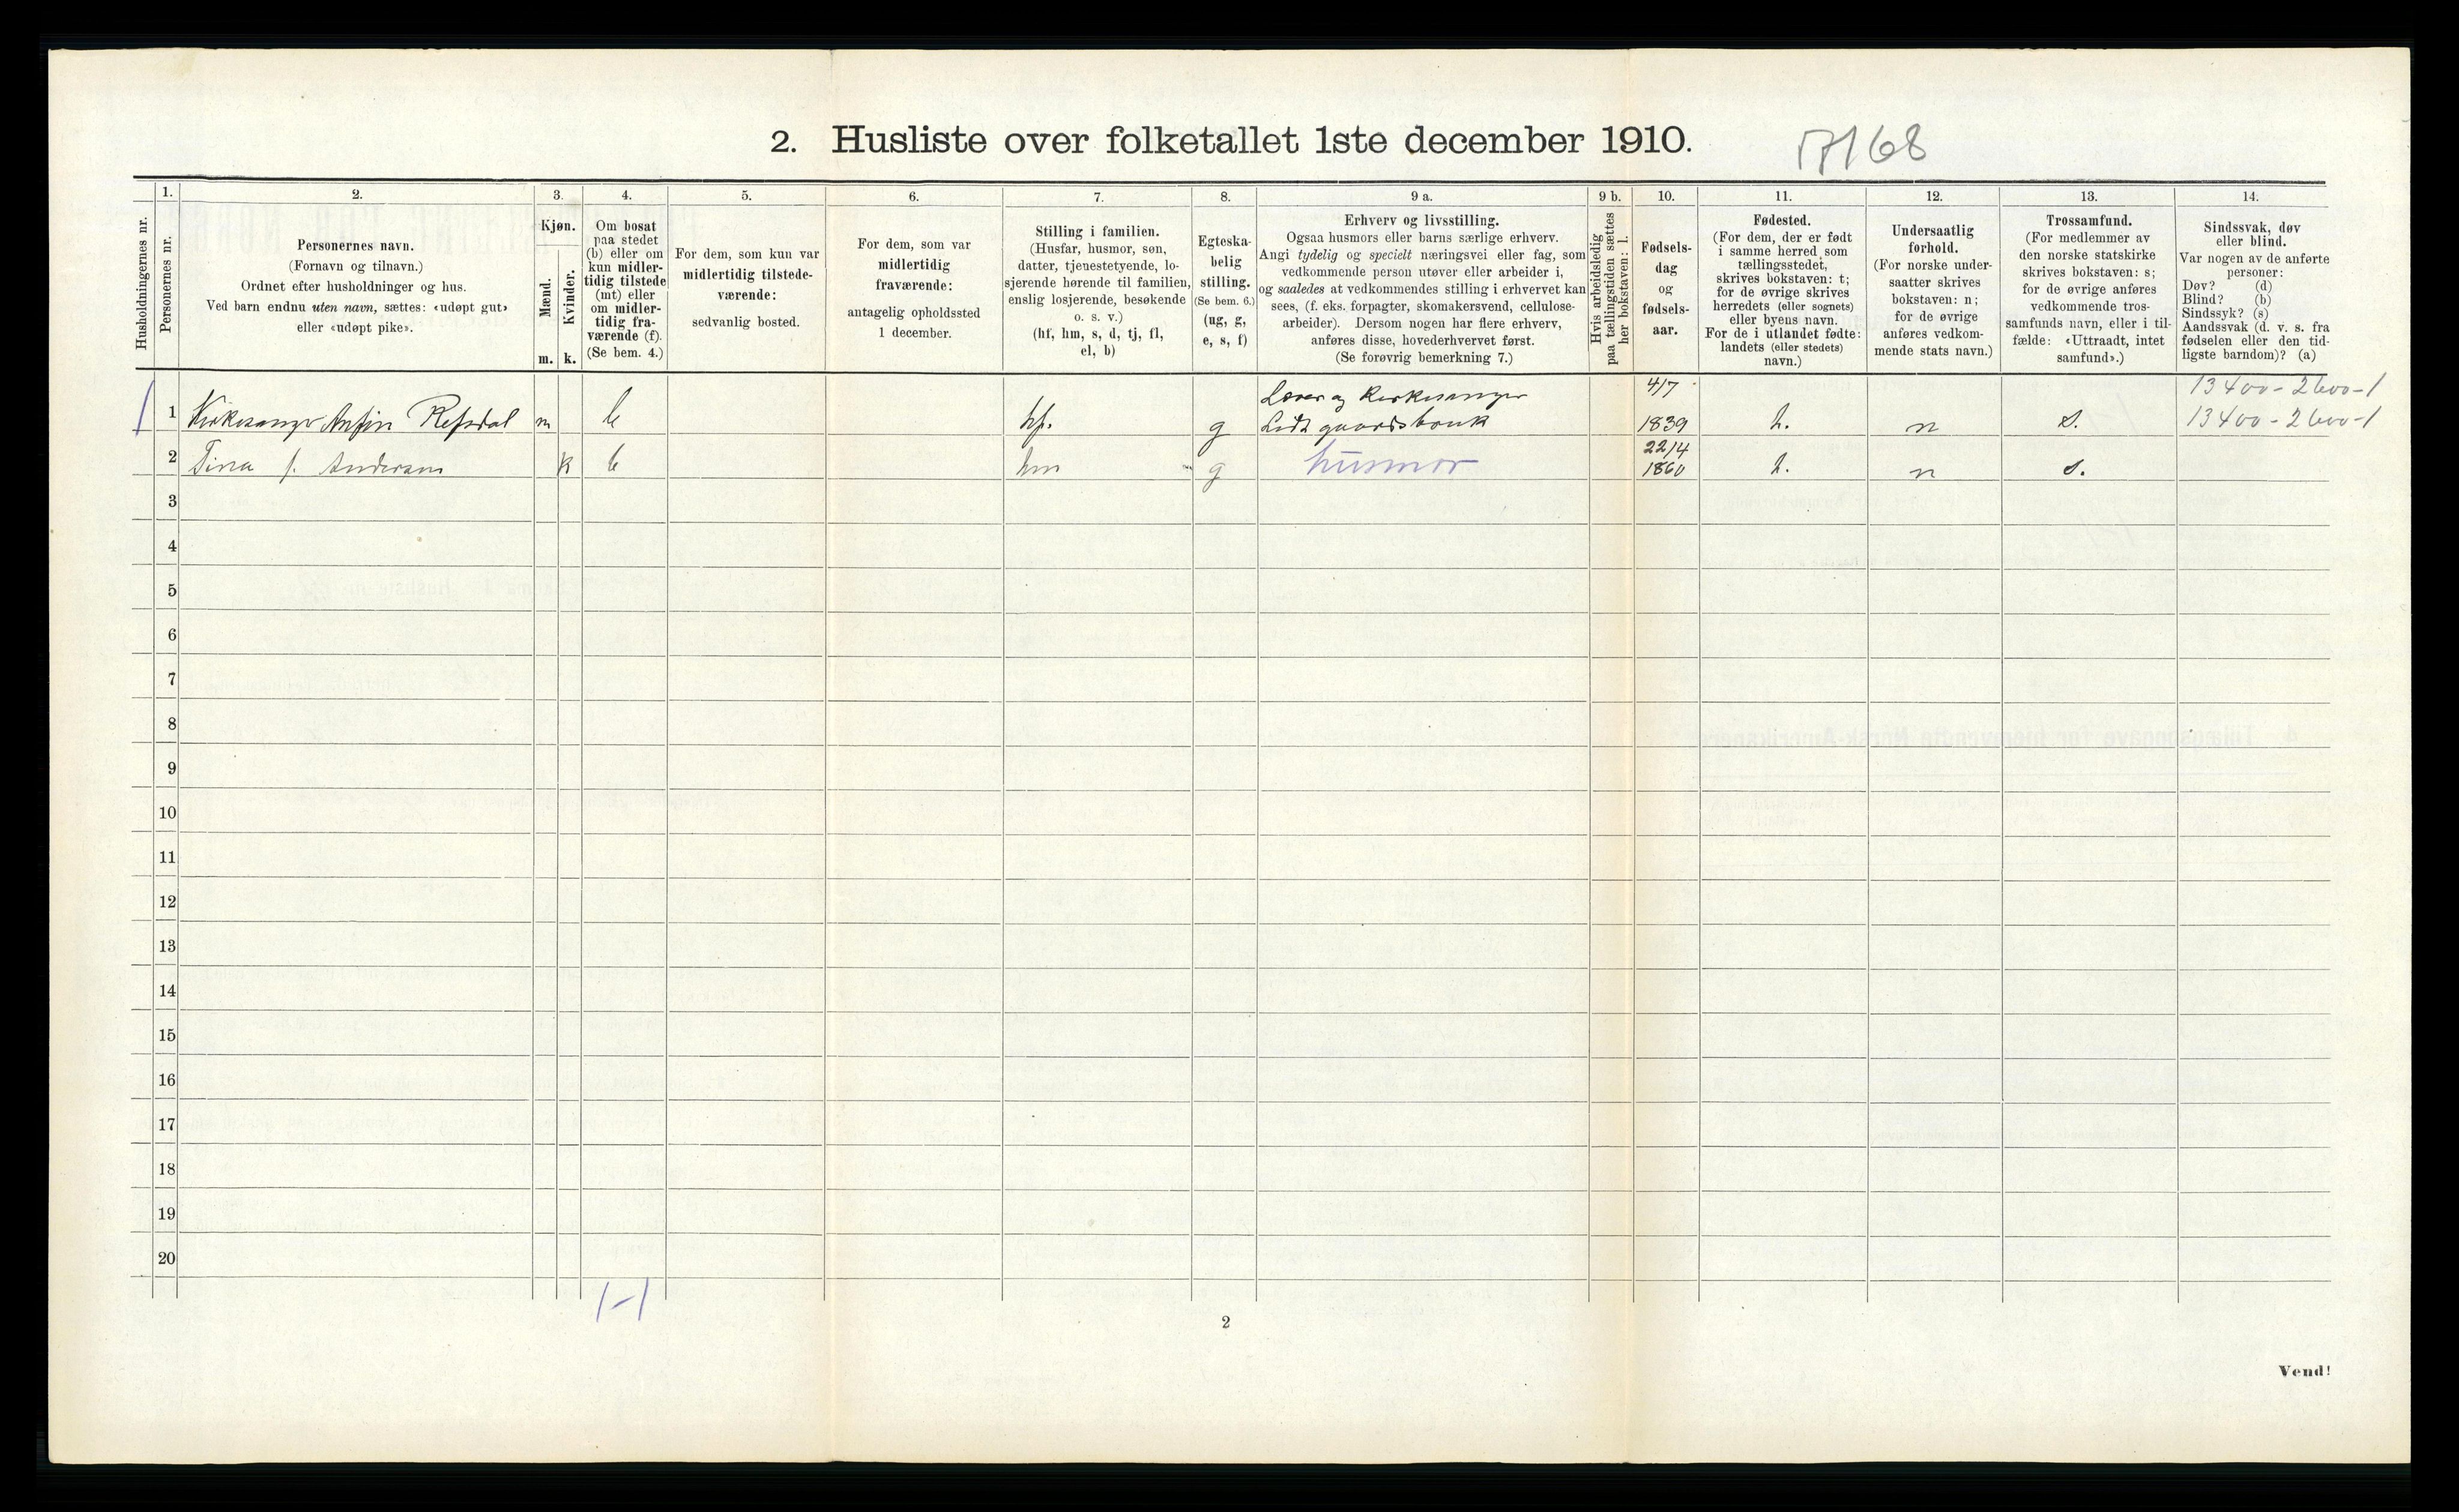 2. Husliste over folketallet 1ste december 1910.
17168
Husholdningernes nr.
1.
Personernes nr.
2.
Personernes navn.
(Fornavn og tilnavn.)
Ordnet efter husholdninger og hus.
Ved barn endnu uten navn, sættes: «udøpt gut»
eller «udøpt pike».
3.
Kjøn.
Mænd.
Kvinder.
m. k.
4.
Om bosat
paa stedet
(b) eller om
kun midler-
tidig tilstede
(mt) eller
om midler-
tidig fra-
værende (f).
(Se bem. 4.)
5.
For dem, som kun var
midlertidig tilstede-
værende:
sedvanlig bosted.
6.
For dem, som var
midlertidig
fraværende:
antagelig opholdssted
1 december.
7.
Stilling i familien.
(Husfar, husmor, søn,
datter, tjenestetyende, lo-
sjerende hørende til familien,
enslig losjerende, besøkende
o. s. v.)
(hf, hm, s, d, tj, fl,
el, b)
8.
Egteska-
belig
stilling.
(Se bem. 6.)
(ug, g,
e, s, f)
9 a.
Erhverv og livsstilling.
Ogsaa husmors eller barns særlige erhverv.
Angi tydelig og specielt næringsvei eller fag, som
vedkommende person utøver eller arbeider i,
og saaledes at vedkommendes stilling i erhvervet kan
sees, (f. eks. forpagter, skomakersvend, cellulose-
arbeider). Dersom nogen har flere erhverv,
anføres disse, hovederhvervet først.
(Se forøvrig bemerkning 7.)
9 b.
Hvis arbeidsledig
paa tællingstiden sættes
her bokstaven: l.
10.
Fødsels-
dag
og
fødsels-
aar.
11.
Fødested.
(For dem, der er født
i samme herred som
tællingsstedet,
skrives bokstaven: t;
for de øvrige skrives
herredets (eller sognets)
eller byens navn.
For de i utlandet fødte:
landets (eller stedets)
navn.)
12.
Undersaatlig
forhold.
(For norske under-
saatter skrives
bokstaven: n;
for de øvrige
anføres vedkom-
mende stats navn.)
13.
Trossamfund.
(For medlemmer av
den norske statskirke
skrives bokstaven: s;
for de øvrige anføres
vedkommende tros-
samfunds navn, eller i til-
fælde: «Uttraadt, intet
samfund».)
14.
Sindssvak, døv
eller blind.
Var nogen av de anførte
personer:
Døv? (d)
Blind? (b)
Sindssyk? (s)
Aandssvak (d. v. s. fra
fødselen eller den tid-
ligste barndom)? (a)
Lærer og Kirkesanger 4/7 13400-2600-1
1 1 Kirkesanger Anfin Refsdal m b hf. g Lidt gaardsbruk 1839 t. n s. 13400-2600-1
22/4
2 Tina J. Andersen k b hm g husmor 1860 t. n s.
3
4
5
6
7
8
9
10
11
12
13
14
15
16
17
18
19
20
1-1
2
Vend!